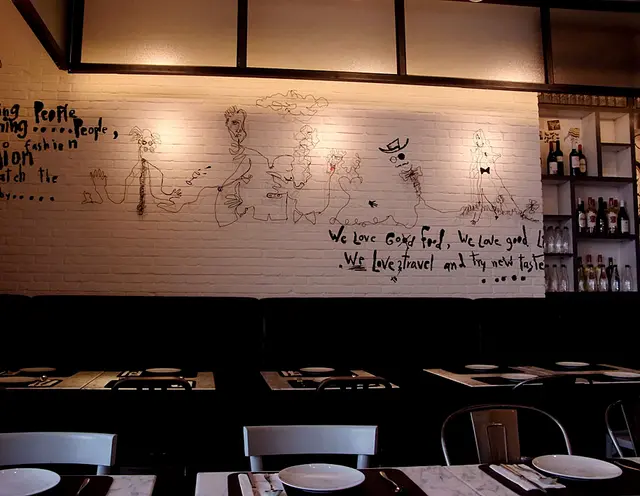 People
.....People,
fashion
atch the
.....
We Love Good Food, We Love good
We Love travel and try new taste
.....